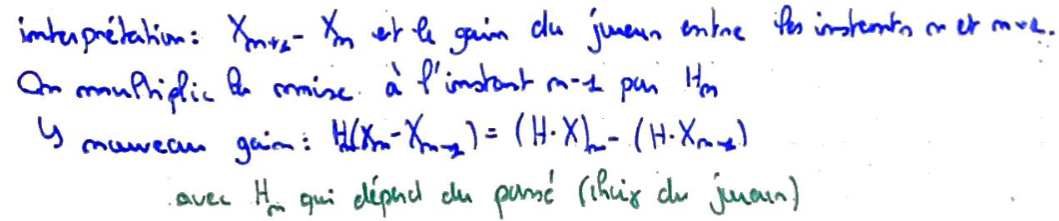 interprétation: X_{n+1} - X_n est le gain du joueur entre les instants n et n+1.
On multiplie la mise à l'instant n-1 par H_n
↳ nouveau gain: H(X_n - X_{n-1}) = (H·X)_n - (H·X_{n-1})
avec H_n qui dépend du passé (choix du joueur)